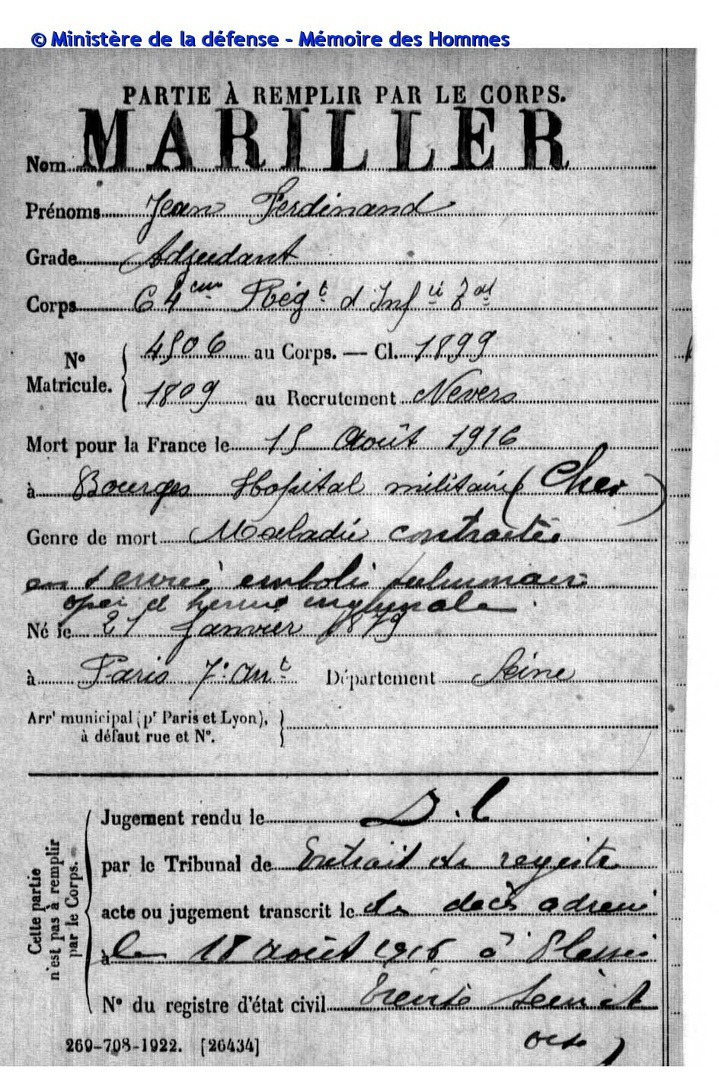 © Ministère de la défense - Mémoire des Hommes
PARTIE À REMPLIR PAR LE CORPS.
Nom MARILLER
Prénoms Jean Ferdinand
Grade Adjudant
Corps 64eme Régt d'Infie
4506 au Corps. — Cl. 1899
No Matricule.
1809 au Recrutement Nevers
Mort pour la France le 15 Août 1916
à Bourges Hopital militaire (Cher)
Genre de mort Maladie contractée
en service embolie pulmonaire
opéré d hernie inguinale
Né le 21 Janvier 1879
à Paris 7e Arrt Département Seine
Arrt municipal (pr Paris et Lyon),
à défaut rue et No.
Cette partie n'est pas à remplir par le Corps.
Jugement rendu le D.C
par le Tribunal de Extrait du registre
acte ou jugement transcrit le de décès adressé
à le 18 août 1916 à
No du registre d'état civil
269-708-1922. [26434]